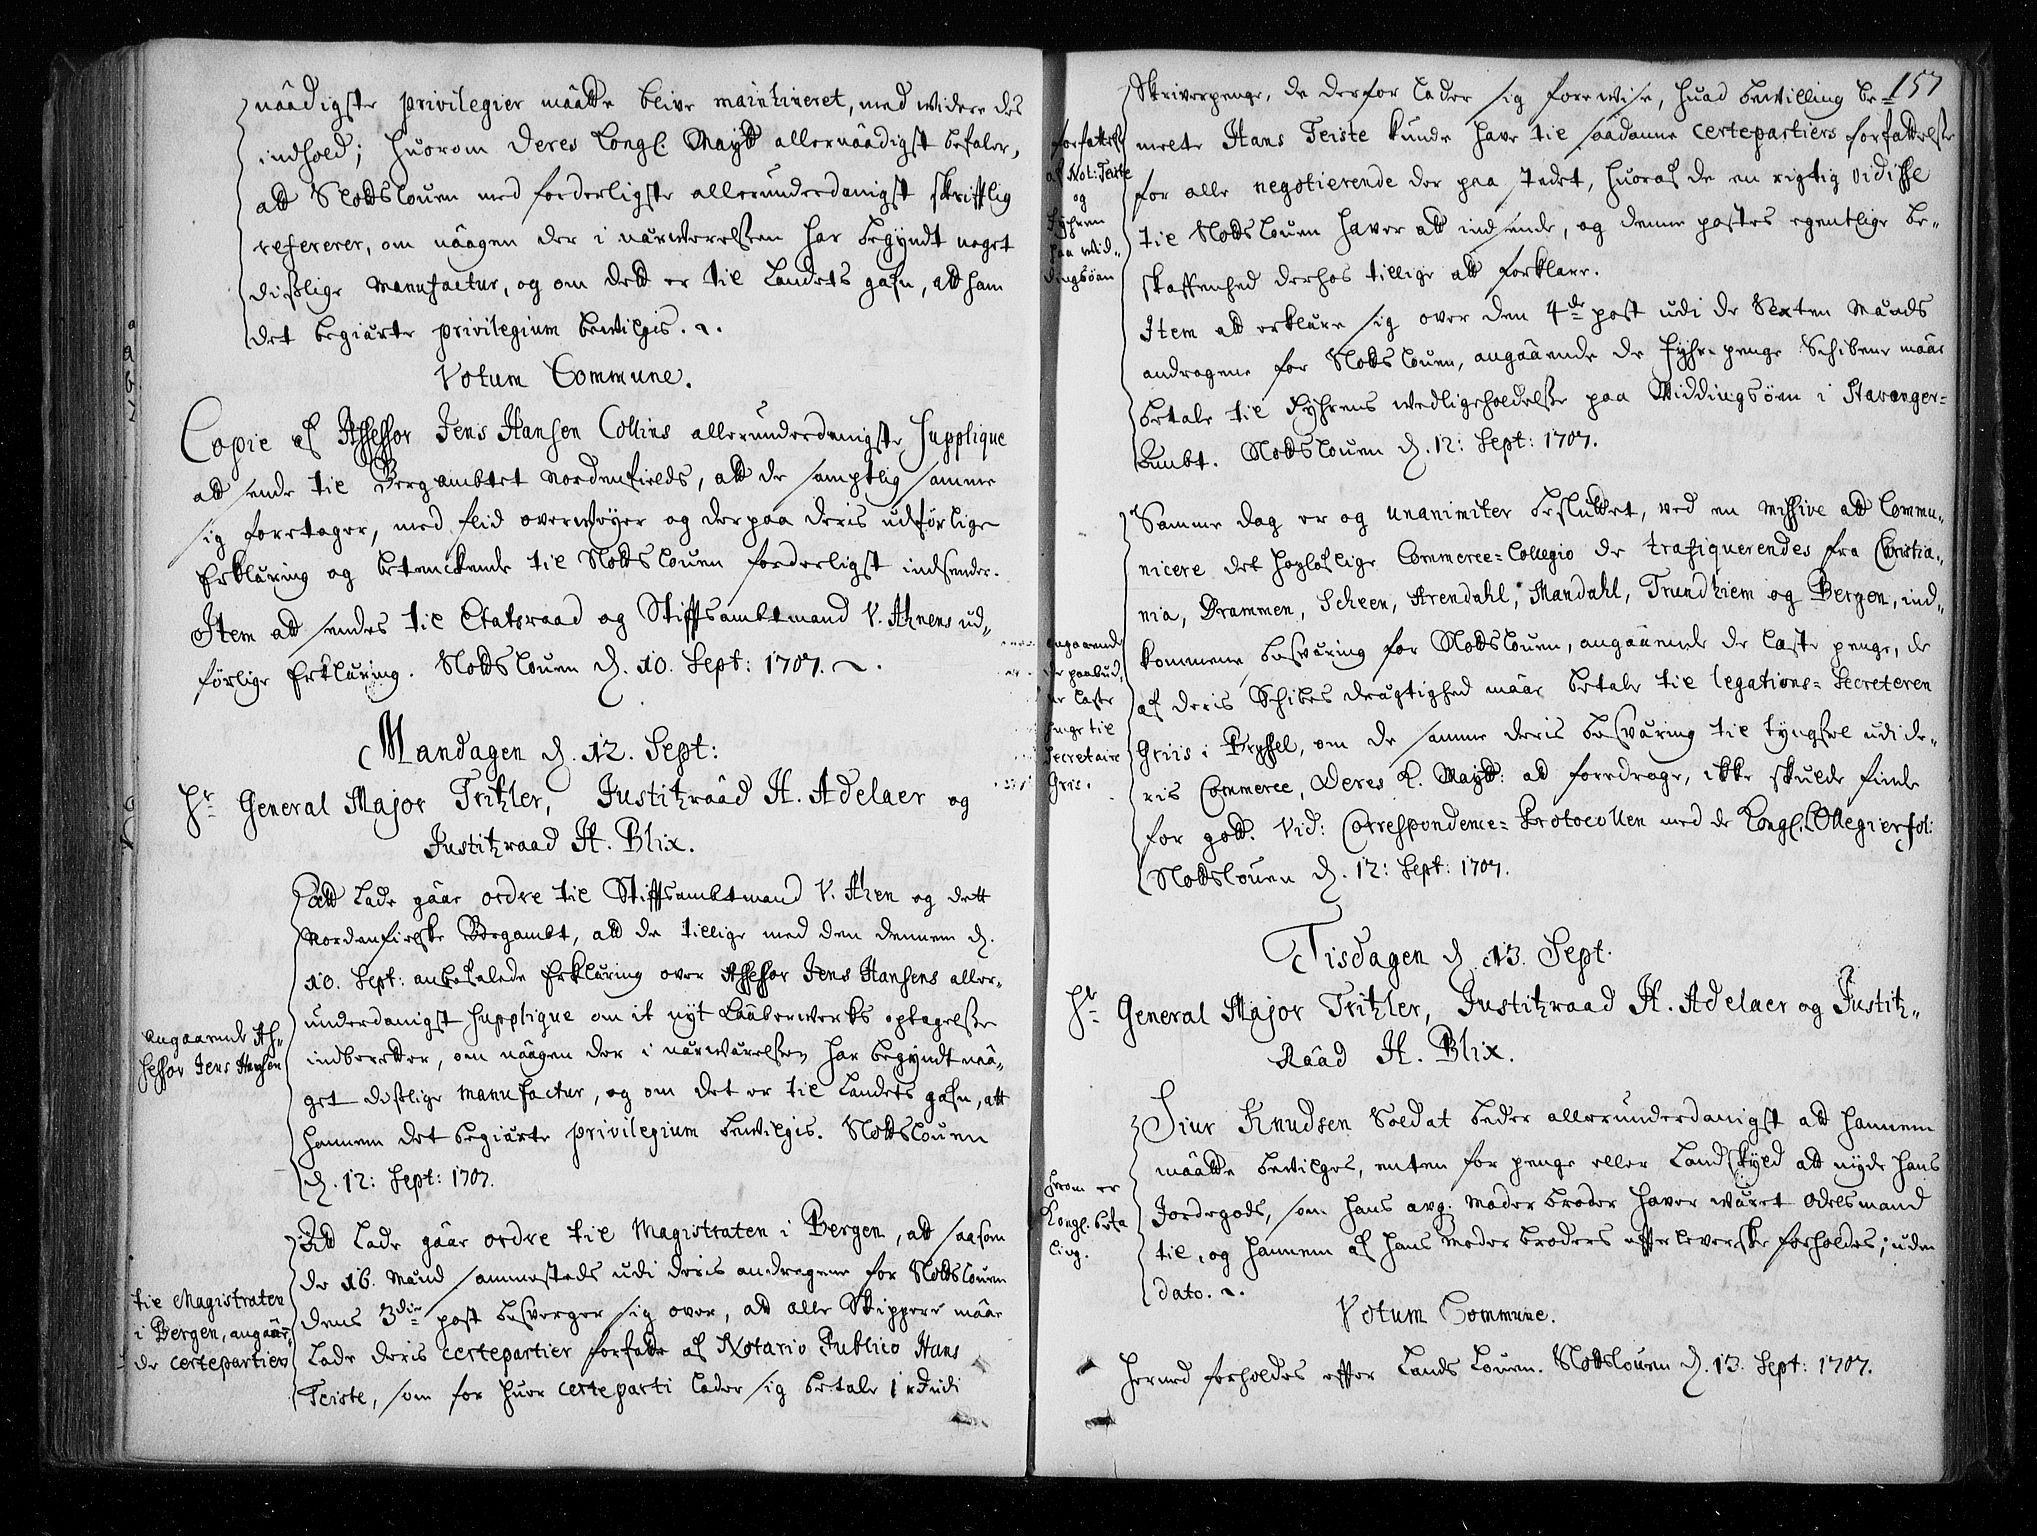 naadigste privilegier maatte blive maintineret, med widere des
indhold; huorom Deres Kongl. Maytt allernaadigst befaler,
att Slottslouen med forderligste allerunderdanigst skrifflig
refererer, om naagen der i nærwerelsen har begyndt noget
dislige Manufactur, og om dett er til Landets gafn, att ham
det begiærte privilegium bevilgis.
Votum Commune.
Copie af Assessor Jens Hansen Collins allerunderdanigste Supplique
att sende til Bergambtet Nordenfields, att de samptlig samme
sig foretager, med flid overweyer og derpaa deris udførlige
Erklæring og betenckende til Slottslouen forderligst indsender.
Item att sendes til Etatsraad og Stifftsambtmand V. Ahnens ud-
førlige Erklæring. Slottslouen d. 10. Sept: 1707.
Mandagen d. 12. Sept:
Hr General Major Tritzler, Justitzraad H. Adelaer og
Justitzraad H. Blix.
Att lade gaae ordre til Stifftsambtmand V. Ahen og dett
Nordenfielske Bergambt, att de tillige med den dennem d.
10. Sept: anbefalede Erklæring over Assessor Jens Hansens aller-
underdanigst Supplique om it nyt Kaaberwerks optagelse
indberetter, om naagen der i nærwærelsen har begyndt naa-
get dislige Manufactur, og om det er til Landets gafn, att
hannem det begiærte privilegium bewilgis. Slottslouen
d. 12: Sept: 1707.
angaaende As-
sessor Jens Hansen
Att lade gaae ordre til Magistraten i Bergen, att saasom
de 16. Mænd sammesteds udi deris andragene for Slottslouen
dens 3die post besverger sig over, att alle Skippere maae
lade deris certepartier forfatte af Notario Publico Hans
Teiste, som for huer certeparti lader sig betale 1 rd udi
til Magistraten
i Bergen, angaaen-
de certepartier
157
Skriverpenge, de derfor lader sig forewise, huad bewilling be-
melte Hans Teiste kunde have til saadanne certepartiers forfattelse
for alle negotierende der paa stedet, huoraf de en rigtig vidisse
til Slottslouen haver att indsende, og denne postes egentlige be-
skaffenhed derhos tillige att forklare.
Item att erklære sig over den 4de post udi de Sexten Mænds
andragene for Slottslouen, angaaende de Fyhr-penge Schibene maae
betale til Fyhrens wedligeholdelse paa Widdingsøen i Stavanger-
Ambt. Slottslouen d. 12: Sept: 1707.
forfattelse
af Not: Teiste
og
Fyhren
paa Wid-
dingsøen
Samme dag er og unanimiter besluttet, ved en Missive att Commu-
nicere det højloflige Commerce-Collegio de trafiquerendes fra Christia-
nia, Drammen, Scheen, Arendahl, Mandahl, Trundhiem og Bergen, ind-
kommene besværing for Slottslouen, angaaende de læste penge, de
af deris Schibes dregtighed maae betale til legations-Secreteren
Griis i Bryssel, om de samme deris besværing til tyngsel udi de-
ris Commerce, Deres K. Maytt: att foredrage, ikke skulde finde
for gott. Vid: Correspondence-Protocollen med de Kongl. Collegier fol:
Slottslouen d. 12: Sept: 1707.
angaaende
de paabud-
ne læste
penge til
Secretaire
Gris.
Tisdagen d. 13. Sept.
Hr General Major Tritzler, Justitzraad H. Adelaer og Justitz-
Raad H. Blix.
Siur Knudsen Soldat beder allerunderdanigst att hannem
maatte bevilges, enten for penge eller Landskyld att nyde hans
Jordegods, som hans avg: Moder broder haver wæret Odelsmand
til, og hannem af hans Moder broders efterleverske forholdes; uden
dato.
huorom er
Kongl. befa
ling.
Votum Commune.
Hermed forholdes effter Lands Louen. Slottslouen d. 13. Sept: 1707.